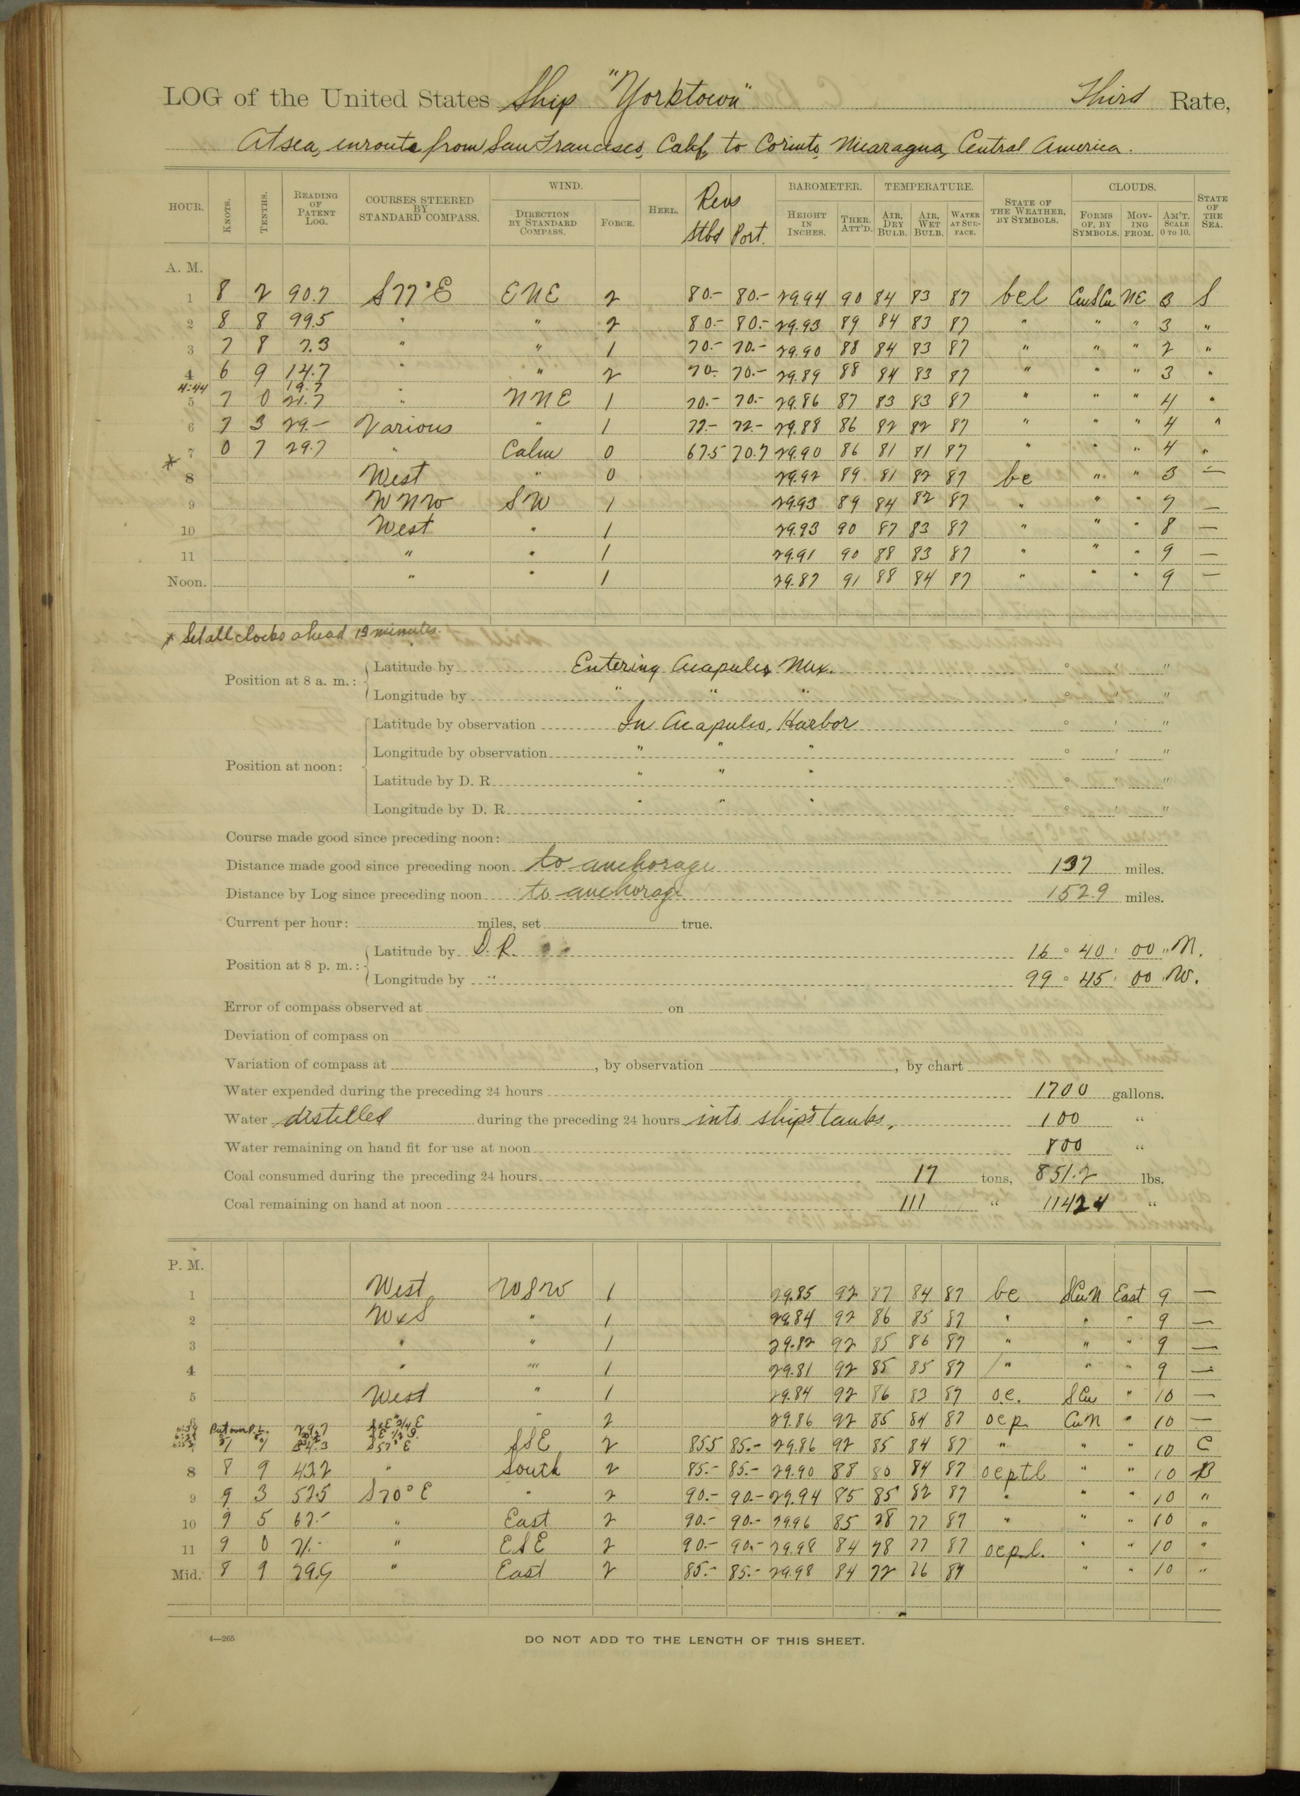 LOG of the United States Ship "Yorktown" Third Rate,
At sea, enroute from San Francisco, Calif. to Corinto, Nicaragua, Central America.
HOUR. KNOTS. TENTHS. READING OF PATENT LOG. COURSES STEERED BY STANDARD COMPASS. WIND. DIRECTION BY STANDARD COMPASS. FORCE. HEEL. Revs Stbd Port. BAROMETER. HEIGHT IN INCHES. THER. ATT'D. TEMPERATURE. AIR, DRY BULB. AIR, WET BULB. WATER AT SURFACE. STATE OF THE WEATHER, BY SYMBOLS. CLOUDS. FORMS OF, BY SYMBOLS. MOVING FROM. AM'T. SCALE 0 TO 10. STATE OF THE SEA.
A. M.
1 8 2 90.7 S77°E ENE 2 80.- 80.- 29.94 90 84 83 87 bcl CuSCu NE 3 S
2 8 8 99.5 " " 2 80.- 80.- 29.93 89 84 83 87 " " " 3 "
3 7 8 7.3 " " 1 70.- 70.- 29.90 88 84 83 87 " " " 2 "
4 6 9 14.7 " " 2 70.- 70.- 29.89 88 84 83 87 " " " 3 "
4:44 19.7
5 7 0 21.7 " NNE 1 70.- 70.- 29.86 87 83 83 87 " " " 4 "
6 7 3 29.- Various " 1 72.- 72.- 29.88 86 82 82 87 " " " 4 "
* 7 0 7 29.7 " Calm 0 67.5 70.7 29.90 86 81 81 87 " " " 4 "
8 West " 0 29.92 89 81 82 87 bc " " 3 —
9 WNW SW 1 29.93 89 84 82 87 " " " 7 —
10 West " 1 29.93 90 87 83 87 " " " 8 —
11 " " 1 29.91 90 88 83 87 " " " 9 —
Noon. " " 1 29.87 91 88 84 87 " " " 9 —
* Set all clocks ahead 19 minutes.
Position at 8 a. m.: Latitude by Entering Acapulco, Mex. ° ' "
Longitude by " " " ° ' "
Position at noon: Latitude by observation In Acapulco, Harbor ° ' "
Longitude by observation " " " ° ' "
Latitude by D. R. " " " ° ' "
Longitude by D. R. " " " ° ' "
Course made good since preceding noon:
Distance made good since preceding noon to anchorage 137 miles.
Distance by Log since preceding noon to anchorage 152.9 miles.
Current per hour: miles, set true.
Position at 8 p. m.: Latitude by D. R. 16 ° 40 ' 00 " N.
Longitude by " 99 ° 45 ' 00 " W.
Error of compass observed at on
Deviation of compass on
Variation of compass at , by observation , by chart
Water expended during the preceding 24 hours 1700 gallons.
Water distilled during the preceding 24 hours into ship's tanks, 100 "
Water remaining on hand fit for use at noon 800 "
Coal consumed during the preceding 24 hours 17 tons, 851.2 lbs.
Coal remaining on hand at noon 111 " 1142.4 "
P. M.
1 West WSW 1 29.85 92 87 84 87 bc SCuN East 9 —
2 WxS " 1 29.84 92 86 85 87 " " " 9 —
3 " " 1 29.82 92 85 86 87 " " " 9 —
4 " " 1 29.81 92 85 85 87 " " " 9 —
5 West " 1 29.84 92 86 83 87 oc. SCu " 10 —
6 " 2 29.86 92 85 84 87 ocp CuN " 10 —
Put over 29.7
34.3 S57°E SSE 2 85.5 85.- 29.86 92 85 84 87 " " " 10 C
8 8 9 43.2 " South 2 85.- 85.- 29.90 88 80 84 87 ocptl " " 10 B
9 9 3 52.5 S70°E " 2 90.- 90.- 29.94 85 85 82 87 " " " 10 "
10 9 5 62.- " East 2 90.- 90.- 29.96 85 78 77 87 " " " 10 "
11 9 0 71.- " ESE 2 90.- 90.- 29.98 84 78 77 87 ocpl. " " 10 "
Mid. 8 9 79.9 " East 2 85.- 85.- 29.98 84 77 76 87 " " 10 "
4—265
DO NOT ADD TO THE LENGTH OF THIS SHEET.